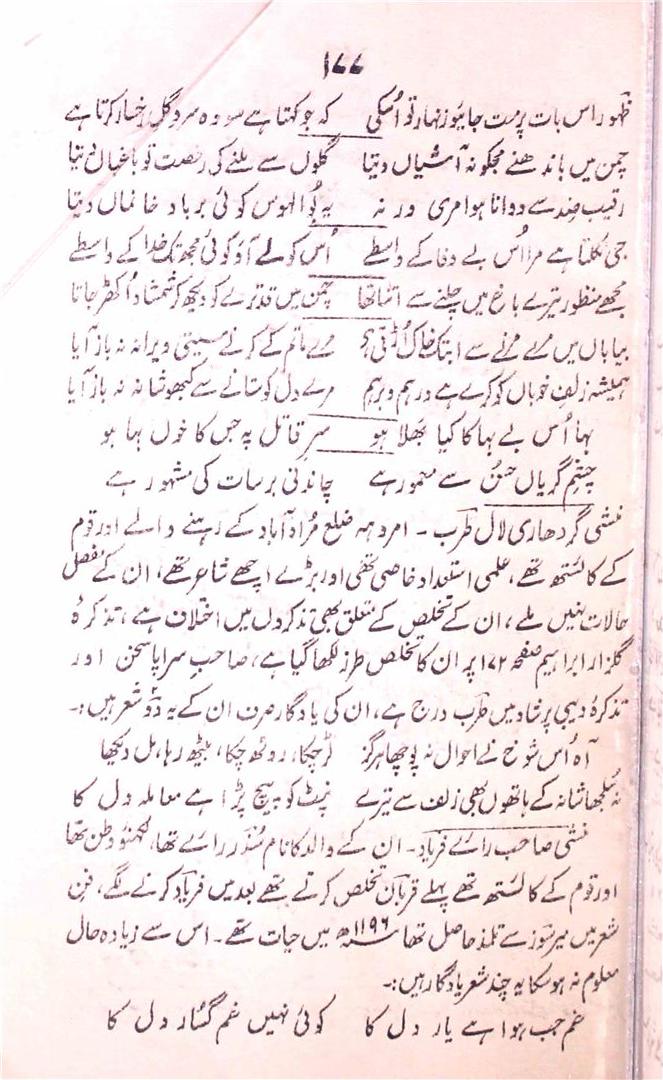 ۱۷۷
ظہور اس بات پر مت جائیو زنہار تو اُسکی کہ جو کہتا ہے سو وہ سرو گل رخسار کرتا ہے
چمن میں باندھنے مجکو نہ آشیاں دیتا گلوں سے ملنے کی رخصت تو باغباں دیتا
رقیب ضِد سے دوانا ہوا مری ورنہ یہ بُوالہوس کوئی برباد خانماں دیتا
جی نکلتا ہے مرا اُس بے وفا کے واسطے اُس کو لے آؤ کوئی مجھ تک خدا کے واسطے
مجھے منظور تیرے باغ میں چلنے سے اتنا تھا چمن میں قد ترے کو دیکھ کر شمشاد اُکھڑ جاتا
بیاباں میں مرے مرنے سے ابتک خاک اُڑتی ہے مرے ماتم کے کرنے سے یہ ویرانہ نہ باز آیا
ہمیشہ زلفِ خوباں کو کرے ہے درہم و برہم مرے دل کو ستانے سے کبھو شانا نہ باز آیا
بہا اُس بے بہا کا کیا بھلا ہو سرِ قاتل پہ جس کا خوں بہا ہو
چشمِ گریاں حسن سے معمور ہے چاندنی برسات کی مشہور ہے
منشی گردھاری لال طرب ۔ امروہہ ضلع مُراد آباد کے رہنے والے اور قوم
کے کائستھ تھے، علمی استعداد خاصی تھی اور بڑے اچھے شاعر تھے، ان کے مفصل
حالات نہیں ملے، ان کے تخلص کے متعلق بھی تذکروں میں اختلاف ہے، تذکرۂ
گلزار ابراہیم صفحہ ۱۷۲ پر ان کا تخلص طرز لکھا گیا ہے، صاحبِ سراپا سخن اور
تذکرہ دیبی پرشاد میں طرب درج ہے، ان کی یادگار صرف ان کے یہ دو شعر ہیں:۔
آہ اُس شوخ نے احوال نہ پوچھا ہرگز لڑ چکا، روٹھ چکا، بیٹھ رہا، مل دیکھا
نہ سُلجھا شانہ کے ہاتھوں بھی زلف سے تیرے نپٹ کو پیچ پڑا ہے معاملہ دل کا
منشی صاحب رائے فریاد ۔ ان کے والد کا نام سُندر رائے تھا، لکھنؤ وطن تھا
اور قوم کے کائستھ تھے پہلے قربان تخلص کرتے تھے بعد میں فریاد کرنے لگے، فن
شعر میں میر سوز سے تلمذ حاصل تھا ۱۱۹۶ھ میں حیات تھے ۔ اس سے زیادہ حال
معلوم نہ ہو سکا یہ چند شعر یادگار ہیں:۔
غم جب ہوا ہے یار دل کا کوئی نہیں غم گسار دل کا